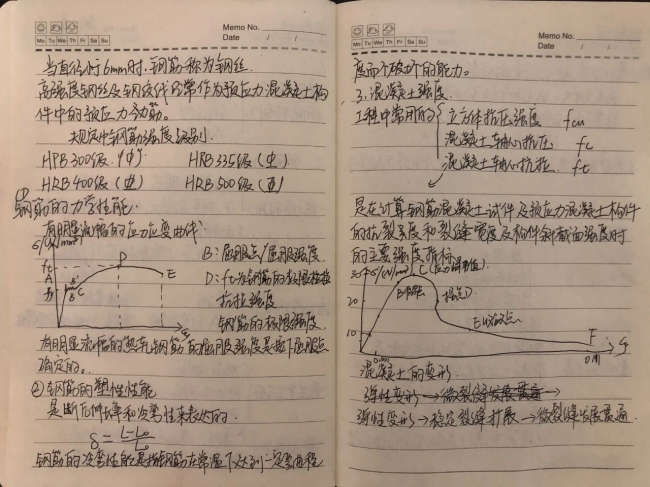 Memo No.
Mo Tu We Th Fr Sa Su
Date / /
当直径小于6mm时,钢筋称为钢丝
高强度钢丝及钢绞线的常作为预应力混凝土构
件中的预应力筋。
规定中钢筋强度级别
HPB 300级
HRB 335级
HRB 400级
HRB 500级
① 钢筋的力学性能
有明显流幅的应力应变曲线
B:屈服点/屈服强度
D:ft为钢筋的极限
抗拉强度
钢筋的极限强度
D
E
A
B'
B
C
有明显流幅的热轧钢筋的屈服强度是按下屈服点
确定的。
② 钢筋的塑性性能
是断后伸长率和冷弯性来表达的
δ = L-L₀/L₀
钢筋的冷弯性能是指钢筋在常温下达到一定弯曲程
Memo No.
Mo Tu We Th Fr Sa Su
Date / /
度而不破坏的能力。
3.混凝土强度
工程中常用的
立方体抗压强度 fcu
混凝土轴心抗压 fc
混凝土轴心抗拉 ft
是在计算钢筋混凝土试件及预应力混凝土构件
的抗裂度和裂缝宽度及构件斜截面强度时
的主要强度指标
20
10
0.001
F
混凝土的变形
弹性变形→微裂缝发展贯通→
弹性变形→稳定裂缝扩展→微裂缝发展贯通